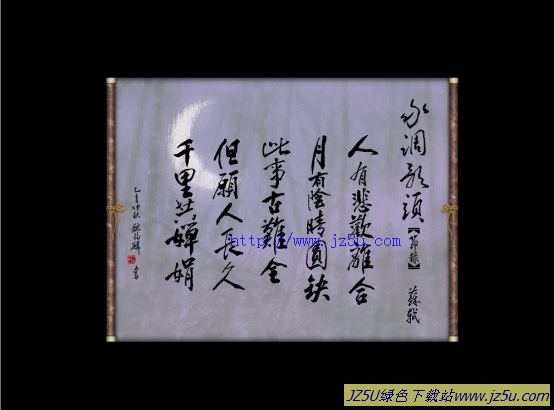 水調歌頭【節錄】 蘇軾
人有悲歡離合
月有陰晴圓缺
此事古難全
但願人長久
千里共嬋娟
http://www.jz5u.com
JZ5U绿色下载站www.jz5u.com